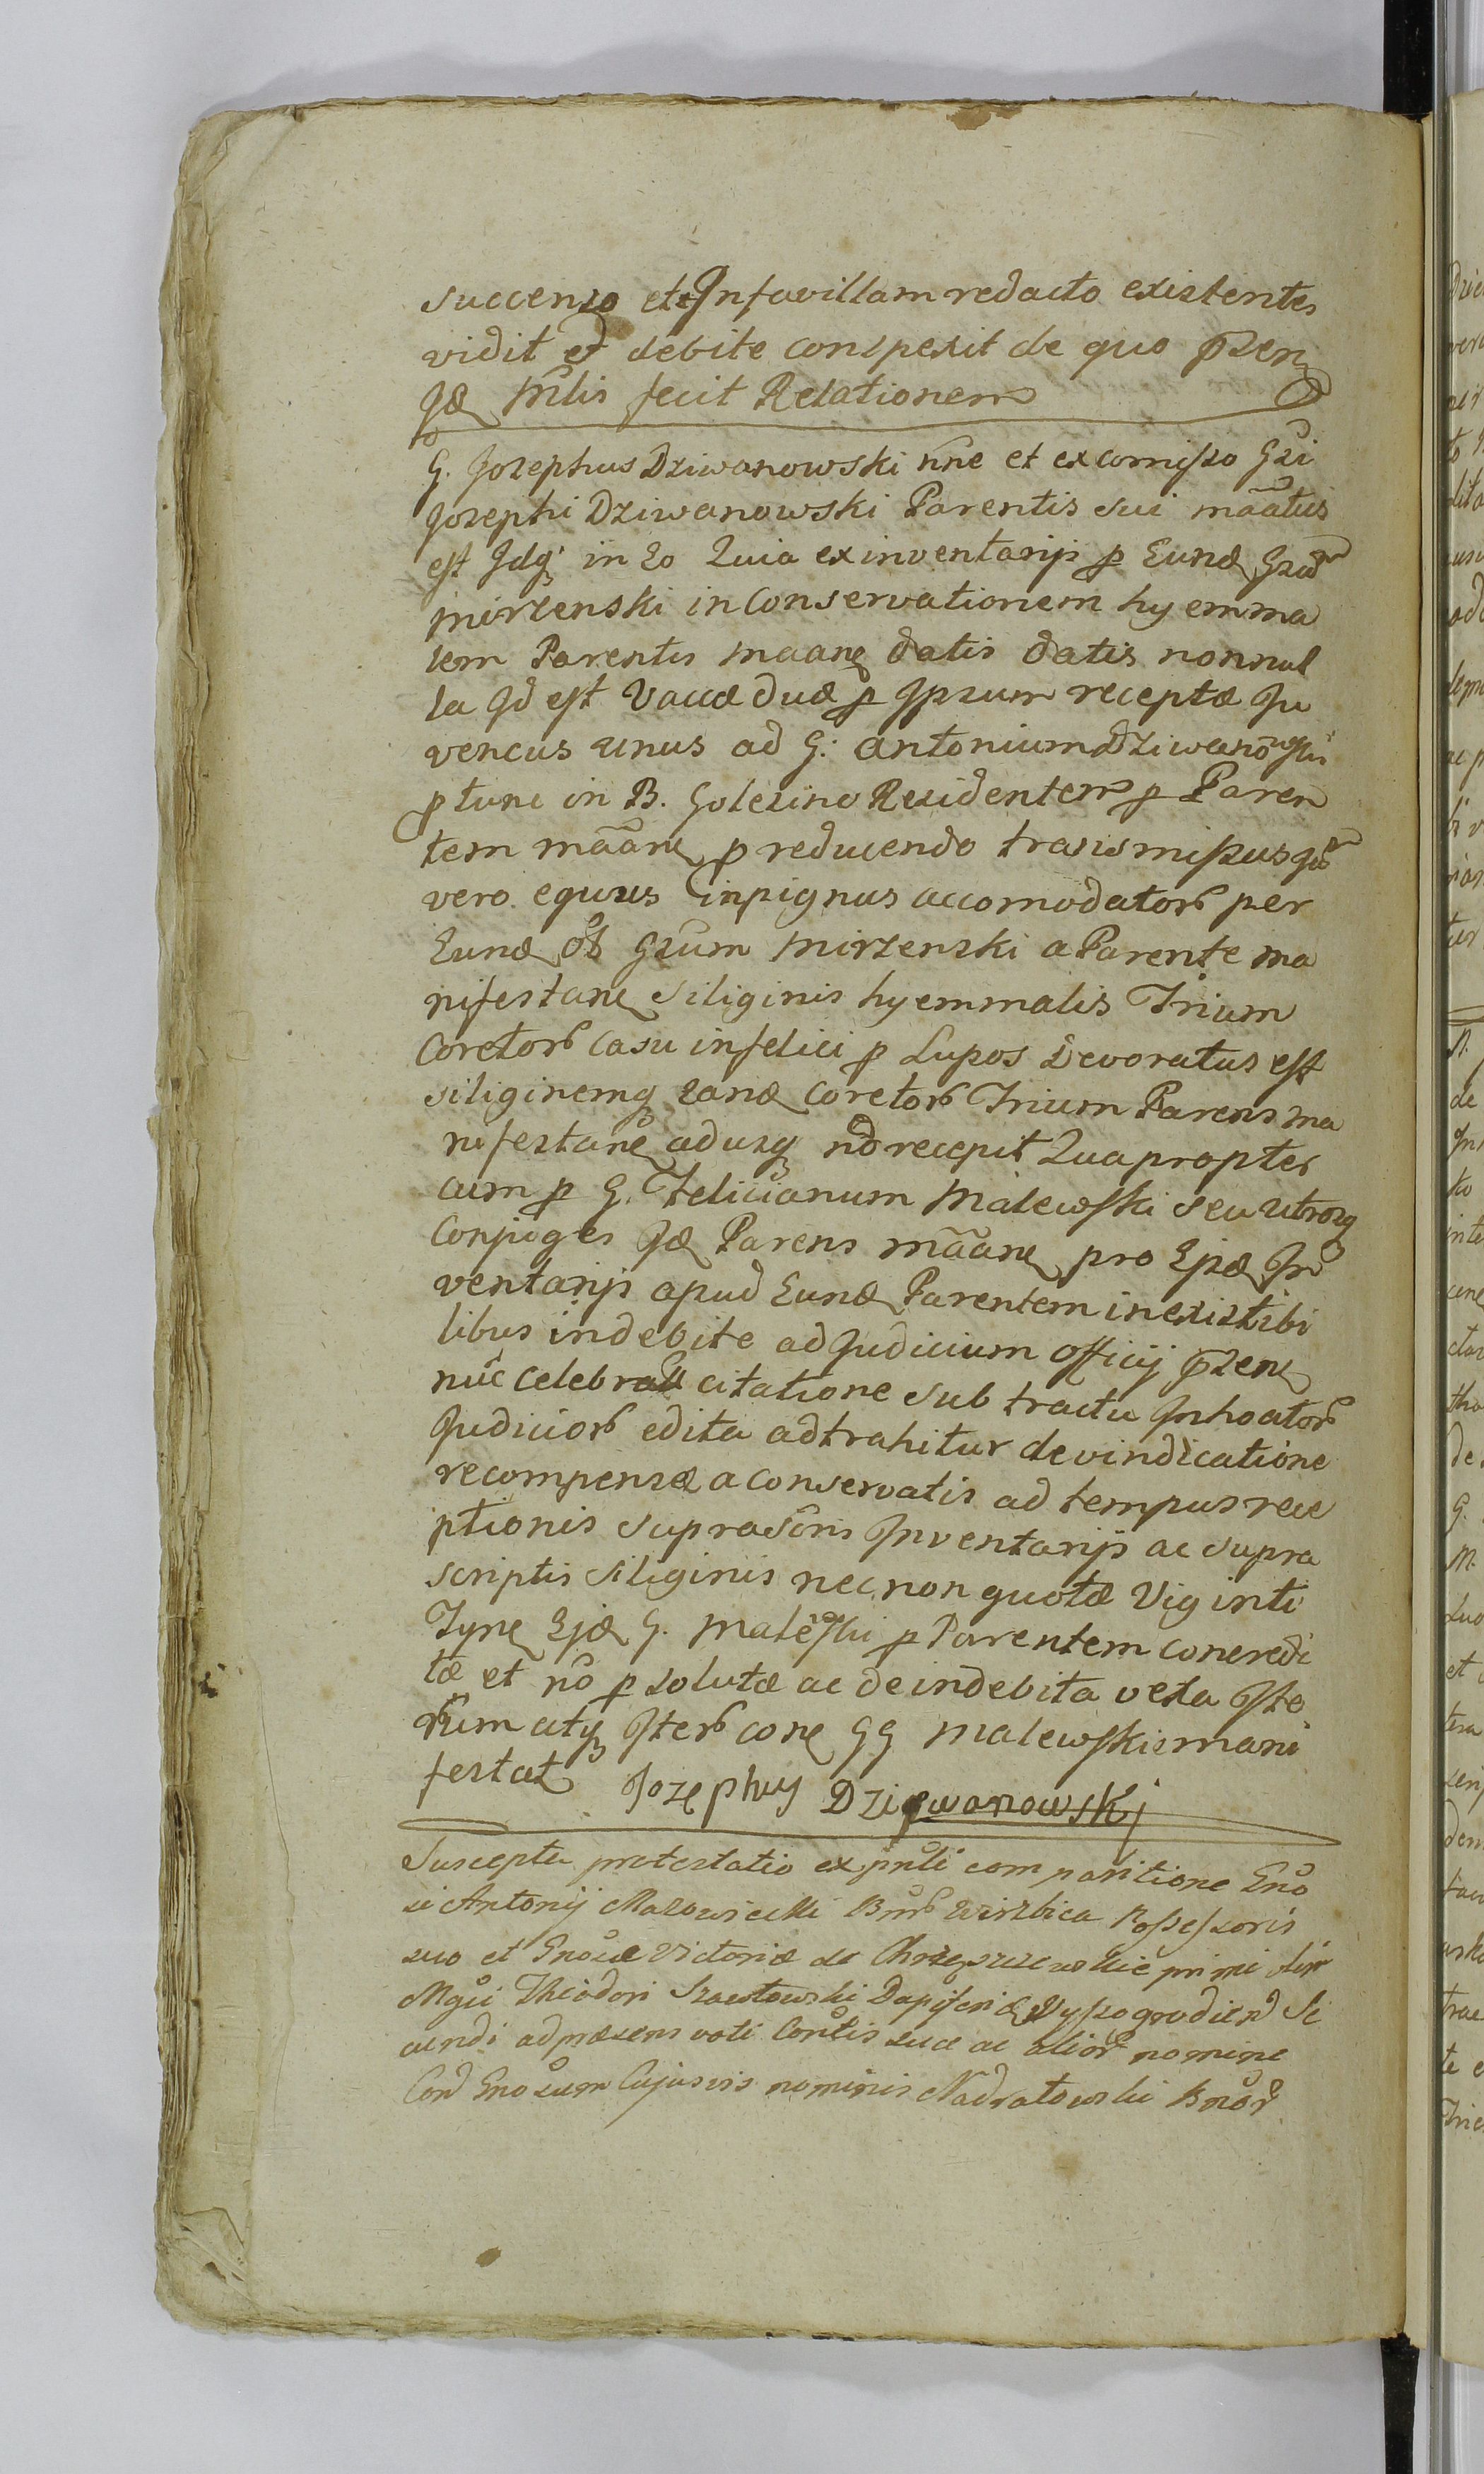 succenso et Infavillam redacto existentes
vidit et debite conspexit de quo p̄sen
Id Mlis fecit Relationem
G. Josephus Dziwanowski nne et ex comisso Gsi
Josephi Dziwanowski Parentis sui mããtus
est Idq in Eo Quia ex inventarijs p Eund Gsu
Mirzenski in Conservationem hyemma
lem Parentis maane datis datis nonnul
la Id est Vaccæ duæ p Ipsum receptæ Ju
vencus unus ad G: Antonium Dziwanowski
p tunc in B. Golezino Residentem p Paren
tem mããne p reducendo transmissus
vero equus in pignus accomodator per
Eund Gsum Mirzenski a Parente ma
nifestane siliginis hyemmalis Trium
Coretor Casu infelici p Lupos Devoratus est
siliginemq eand coretor Trium Parens ma
nifestane adusq no recepit Quapropter
cum p G. Felicianum Malewski seu utrosq
Conjuges Id Parens mããne pro Ejsd In
ventarijs apud Eund Parentem inexistibi
libus indebite ad Judicium officij p̄sen
nuc celebra citatione sub tractu Inhoator
Judicior edita adtrahitur de vindicatione
recompensæ a conservatis ad tempus rece
ptionis suprascris Inventarijs ac supra
scriptis siliginis nec non quotæ Viginti
Tyne Ejd G. Malewski p Parentem concredi
tæ et no p solutæ ac de indebita vexa Ite
rum atq Iter cone GG Malewskie mani
festat Jozephus Dziewanowskj
Suscepta protestatio ex pnti comparitione Gno
si Antonij Mazowiecki Bnor Wirzbica Possessoris
suo et Gnosæ Victoriæ de Chrzęszczewskie primi
Mgci Theodori Szawtowski Dapiferi Wyssogrodien Se
cundi ad præsens voti Contis suæ ac alior nomine
Con Gnosum Cujusvis nominis Nadratowski Bnor